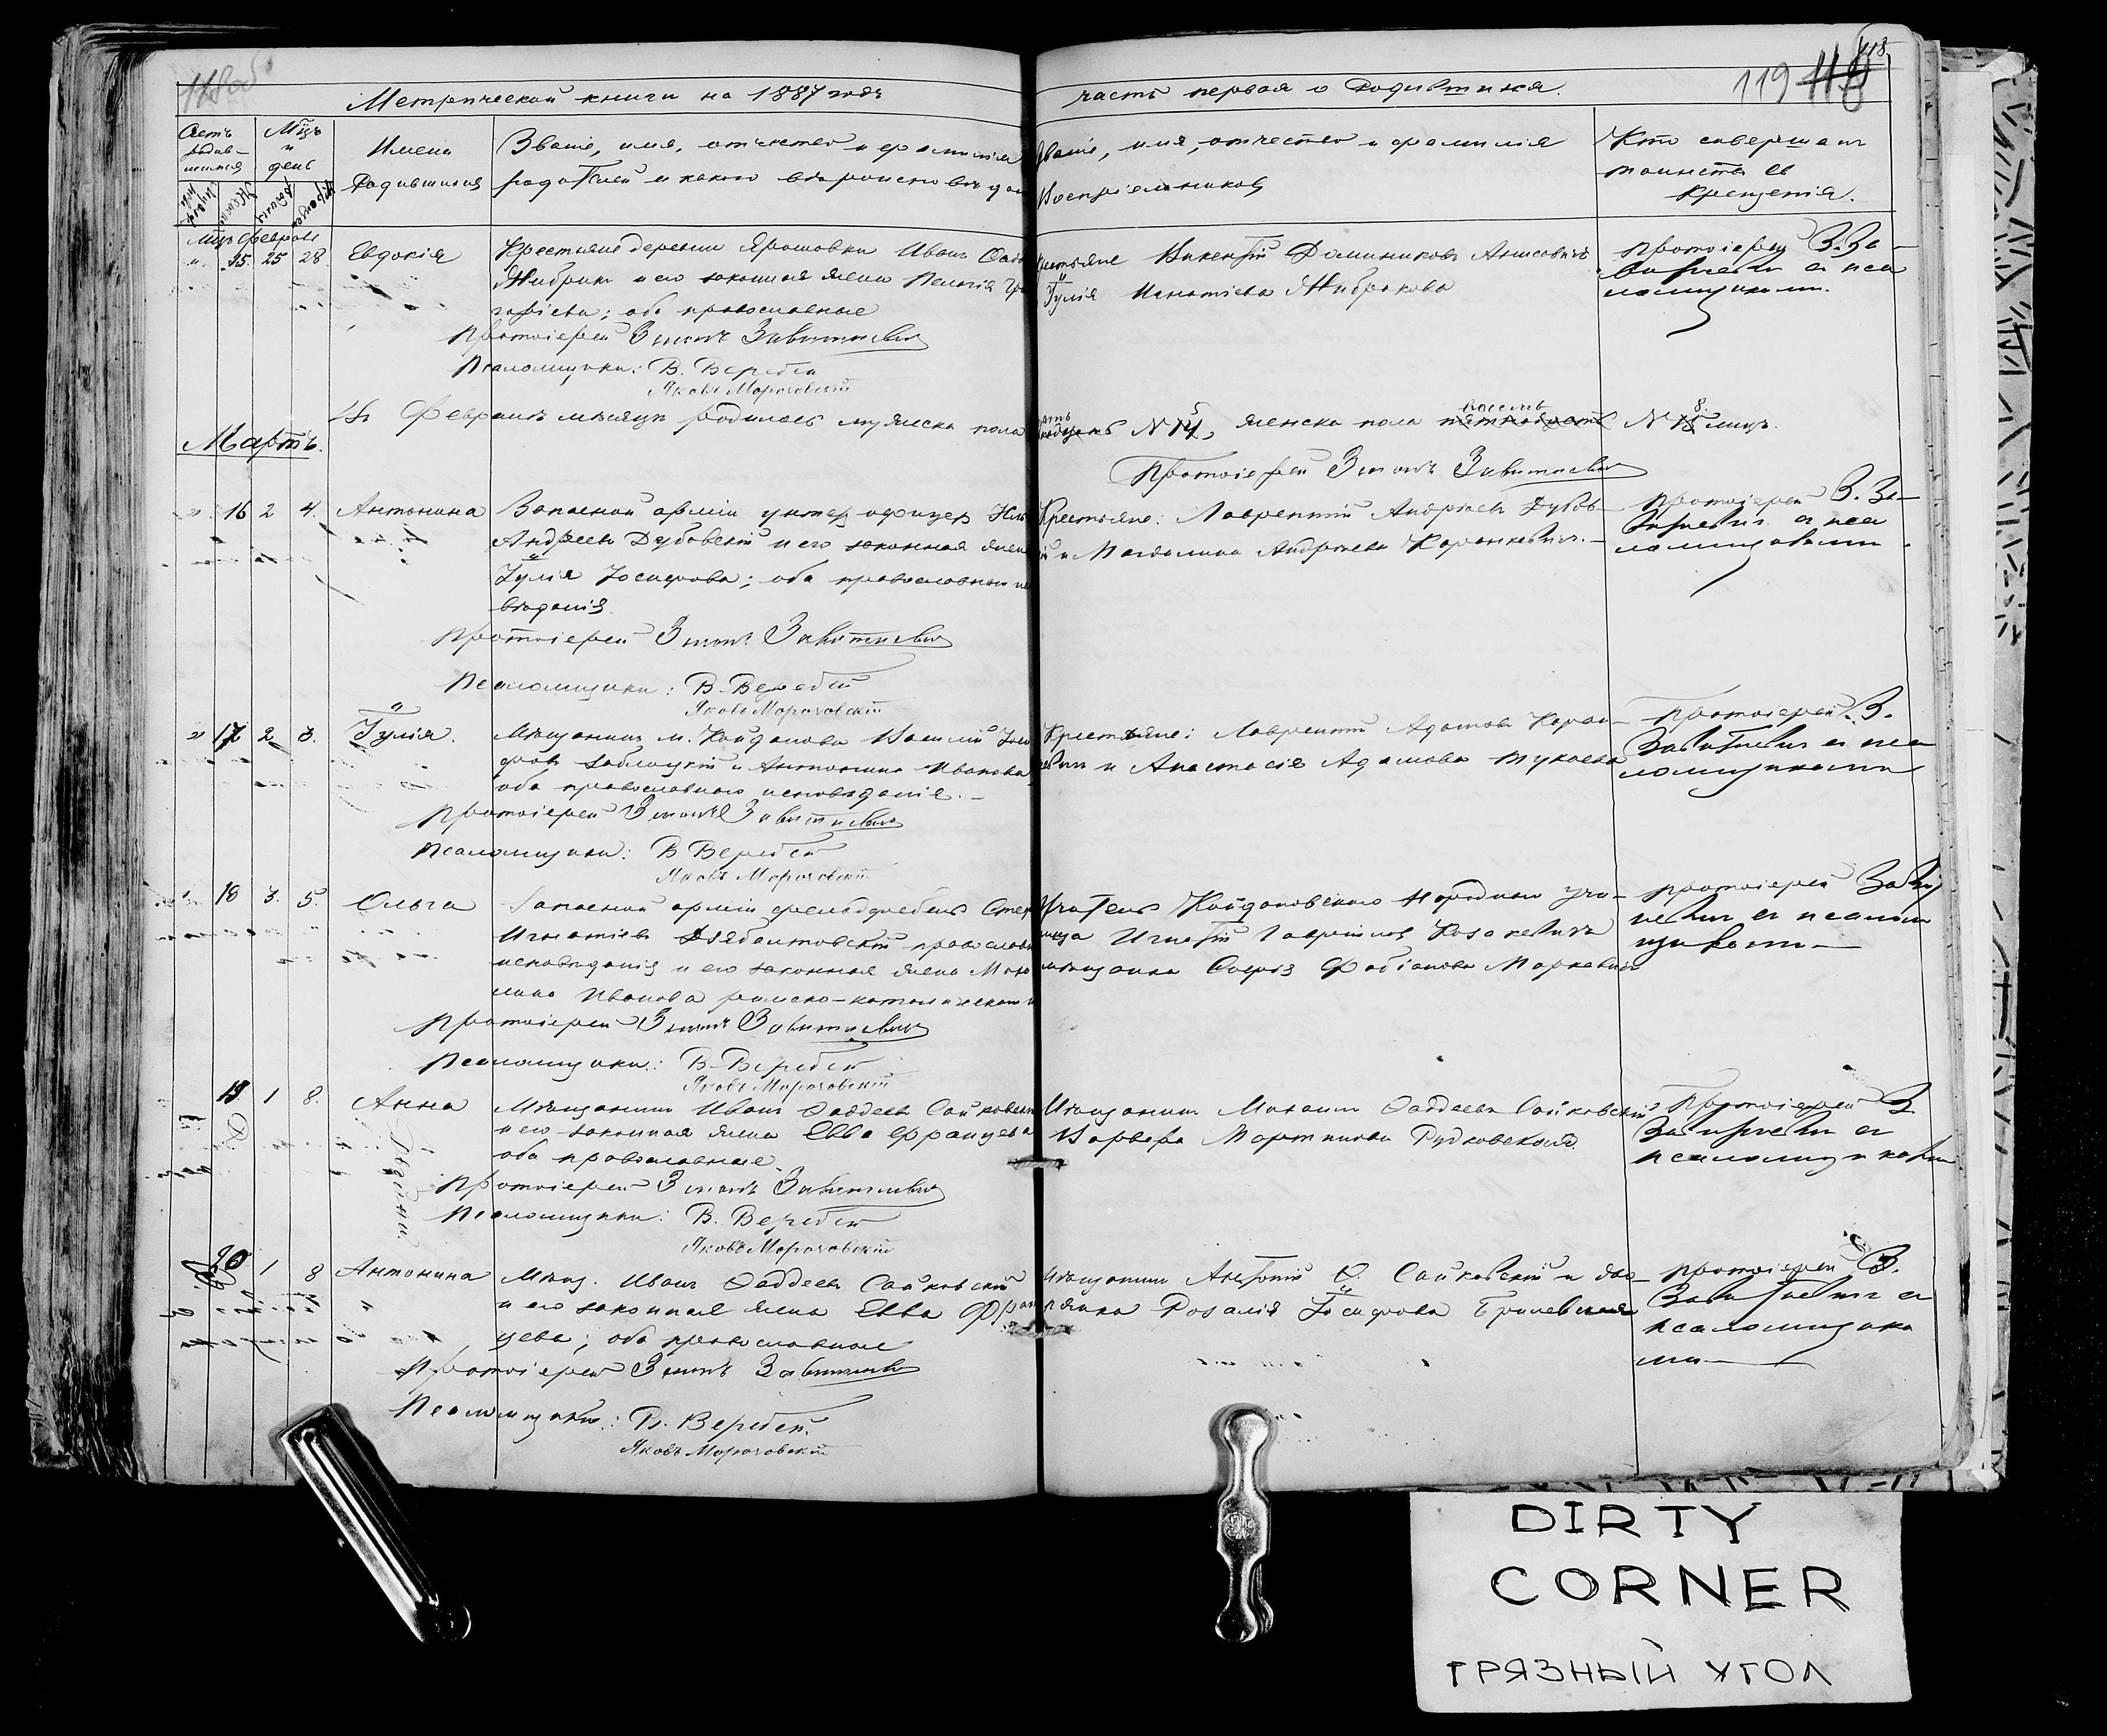 118об
119 118
118
Метрической книги на 1887 годъ
часть первая о Родившихся.
Счетъ родив-шихся
Мцъ и день
Имена Родившихся
Званіе, имя, отчество и фамилія
родителей и какого вѣроисповѣдан
Званіе, имя, отчество и фамилія
Воспріемниковъ
Кто совершалъ
таинство
крещенія.
Мцъ Февраль
15. 25 28 Евдокія
Крестьяне деревни Ярошовки Иванъ
Жибрикъ и его законная жена Пелагія
оба православные
Протоіерей Зинонъ Завитневичъ
Псаломщики: В. Веребей
Яковъ Морочовскій
Крестьяне Викентій Доминиковъ
Іулія Игнатіева
протоіерей З. За-
витневичъ съ пса
ломщиками.
Въ Февралѣ мѣсяцѣ родилось мужеска пола
N 15, женска пола восемь N 8. лицъ.
Протоіерей Зинонъ Завитневичъ
Мартъ.
16 2 4. Антонина
Запасной арміи унтер офицер
Андреевъ Дубовскій и его законная жена
Іулія Іосифова; оба православнаго
вѣданія.
Протоіерей Зинонъ Завитневичъ
Псаломщики: В. Веребей
Яковъ Морочовскій
Крестьяне: Лаврентій Андреевъ Дубов-
и Магдалина Андреева
протоіерей З. За-
витневичъ съ пса
ломщиками
17 2 3. Іулія.
Мѣщанинъ м. Койданова Василій
Заблоцкій и Антонина Иванова
оба православнаго исповѣданія.
Протоіерей Зинонъ Завитневичъ
Псаломщики: В Веребей
Яковъ Морочовскій
Крестьяне: Лаврентій Адамовъ
и Анастасія Адамова
Протоіерей З.
Завитневичъ съ пса
ломщиками
18 3. 5. Ольга
Запасной арміи фельдфебель
Игнатіевъ православн
исповѣданія и его законная жена
Иванова римско-католическаго
Протоіерей Зинонъ Завитневичъ
Псаломщики: В. Веребей
Яковъ Морочовскій
Учитель Койдановскаго народнаго учи-
лища Игнатій Гавриловъ Козакевичъ
мѣщанка Софія Фабіанова Маркевичъ
протоіерей Завит
невичъ съ псалом
щиками
19 1 8. Анна
Двойни
Мѣщанинъ Иванъ Фаддеевъ Сайковскій
и его законная жена Евва Францева
оба православные
Протоіерей Зинонъ Завитневичъ
Псаломщики: В. Веребей
Яковъ Морочовскій
Мѣщанинъ Михаилъ Фаддеевъ Сайковскій
Варвара Мартинова Рудковская
Протоіерей З
Завитневичъ съ
псаломщиками
20 1 8 Антонина
Мѣщ. Иванъ Фаддеевъ Сайковскій
и его законная жена Евва Фран
цева; оба православные
Протоіерей Зинонъ Завитневичъ
Псаломщики: В. Веребей.
Яковъ Морочовскій
Мѣщанинъ Антоній Ф. Сайковскій и дво-
рянка Розалія Іосифова
протоіерей З.
Завитневичъ съ
псаломщика
ми
DIRTY
CORNER
ГРЯЗНЫЙ УГОЛ